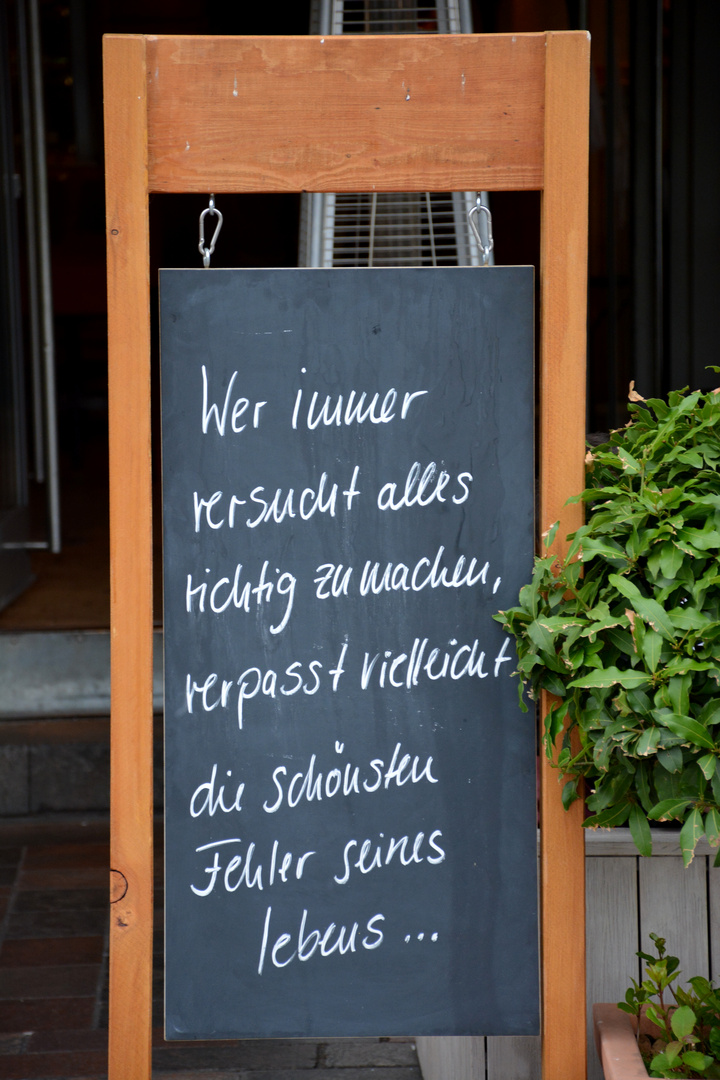 Wer immer
versucht alles
richtig zu machen,
verpasst vielleicht
die schönsten
Fehler seines
lebens...